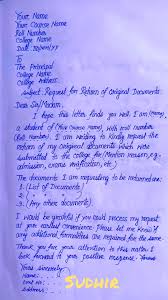 Your Name
Your Course Name
Roll Number
College Name
Date: DD/MM/YY
To
The Principal
College Name
College Address
Subject: Request for Return of Original Documents
Dear Sir/Madam,
I hope this letter finds you well. I am (Name),
a student of (Your Course Name) with roll number
(Roll Number). I am writing to kindly request the
return of my original documents which were
submitted to the college for (Mention reason, e.g.,
admission, verification, etc.)
The documents I am requesting to be returned are:
1. (List of Documents)
2.
3. (Any other documents)
I would be grateful if you could process my request
at your earliest convenience. Please let me know if
any additional formalities are required for the same.
Thank you for your attention to this matter. I
look forward to your positive response.
Yours sincerely
Name:-
SUDHIR